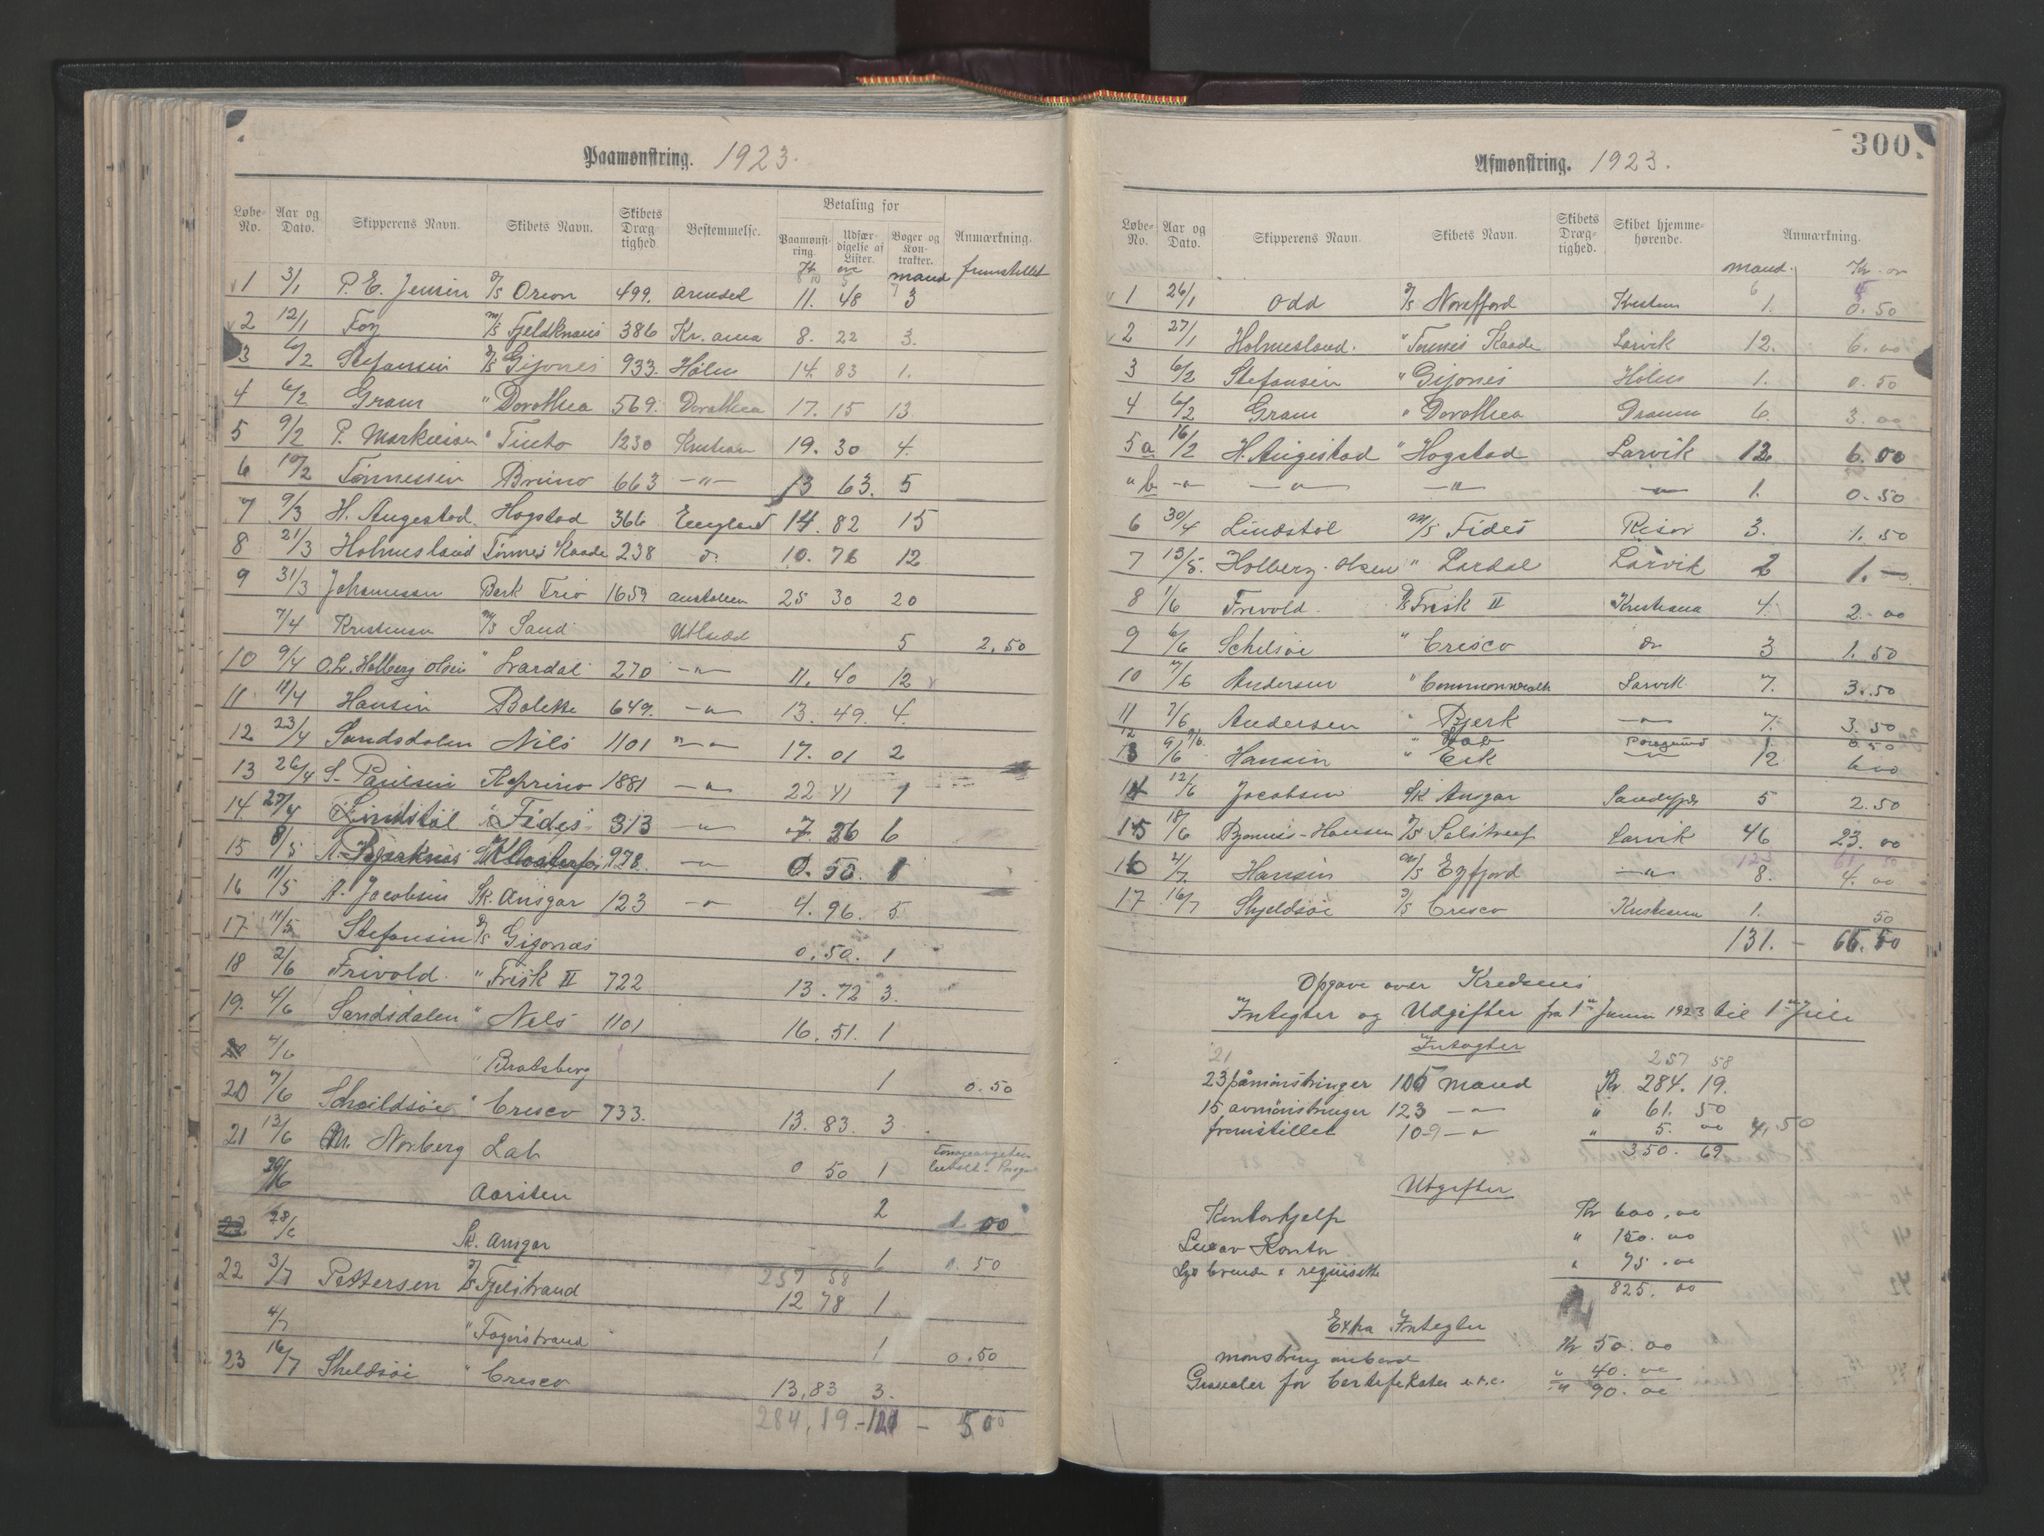 Paamønstring. 1923.
Løbe-No. Aar og Dato. Skipperens Navn. Skibets Navn. Skibets Drægtighed. Bestemmelse. Betaling for Paamønstring. Udfærdigelse af Lister. Bøger og Kontrakter. Anmærkning.
Kr ore mand fremstillet
1 3/1 P. E. Jensen D/S Orion 499. Arendal 11. 48 3
2 12/1 Foy M/S Fjeldknaus 386 Kr. ania 8. 22 3.
3 6/2 Stefansen D/S Gijones 933. Holm 14. 83 1.
4 6/2 Gram " Dorothea 569. Dorothea 17. 15 13
5 9/2 P. Markussen " Tinto 1230 Kristian 19. 30 4.
6 10/2 Tønnessen Bruno 663 -"- 13 63. 5
7 9/3 H. Angestad. Hogstad 366 England 14. 82 15
8 21/3 Holmesland Tønnes Kaade 238 do. 10. 76 12
9 31/3 Johannessen Bark Trio 1659 Australien 25 30 20
7/4 Kristensen M/S Sand Utlandd 5 2,50
10 9/4 O. L. Holberg Olsen " Lardal 270 -"- 11. 40 12
11 11/4 Hansen Bolette 649. -"- 13. 49. 4.
12 23/4 Sandsdalen Nils 1101 -"- 17. 01 2
13 26/4 S. Paulsen Kaprino 1881 -"- 22 41 1
14 27/4 Lindstøl " Fides 313 -"- 7 26 6
15 8/5 A. Bjerknes 978. -"- 0. 50. 1
16 11/5 A. Jacobsen Sk. Ansgar 123 -"- 4. 96. 5
17 11/5 Stefansen D/S Gijonæs 0. 50. 1
18 2/6 Frivold. " Frisk II 722 13. 72 3.
19. 4/6 Sandsdalen " Nils 1101 16. 51. 1
4/6 " Bratsberg 1 0.50
20 7/6 Schieldsøe " Cresco 733. 13. 83. 3
21 13/6 M. Norberg Lab 0 50 1
20/6 Aarsten 2 1 00
28/6 Sk. Ansgar 1 0.50
257 58
22 3/7 Pettersen D/S Fjelstrand 12 78 1
4/7 " Fagerstrand 1 0.50
23 16/7 Skeldsøe " Cresco 13,83 3.
284,19.-121 - 5 00
300.
Afmønstring. 1923.
Løbe-No. Aar og Dato. Skipperens Navn. Skibets Navn. Skibets Drægtighed. Skibet hjemmehørende. Anmærkning.
mand. Kr. or
1 26/1 Odd D/S Norefjord Kristian 1. 0.50
2 27/1 Holmesland. " Tønnes Kaade Larvik 12. 6.00
3 6/2 Stefansen " Gijones Holm 1. 0.50
4 6/2 Gram " Dorothea Dramm 6. 3.00
5a 16/2 H. Angestad " Hogstad Larvik 12 6.00
" b -"- -"- -"- -"- 1. 0.50
6 30/4 Lindstøl M/S Fides Risør 3. 1.50
7 13/5. Holberg. Olsen " Lardal Larvik 2 1.—
8 1/6 Frivold. D/S Frisk II Kristiania 4. 2.00
9 6/6 Schelsøe " Cresco do 3 1.50
10 7/6 Andersen " Commonwealth Larvik 7. 3.50
11 7/6 Andersen " Bjerk -"- 7. 3.50
12 9/6. " Lab Porsgrund 1. 0.50
13 9/6 Hansen " Eik -"- 12 6.00
14 12/6 Jacobsen Sk Ansgar Sandefjor 5 2.50
15 18/6 Bjønnes-Hansen D/S Solstreif Larvik 46 23.00
123 61 50
16 2/7 Hansen M/S Egfjord -"- 8. 4.00
17 16/7 Skjeldsøe D/S Cresco Kristiania 1. 50
131. - 65.50
Opgave over Kredsens
Integter og Udgifter fra 1ste Januar 1923 til 1ste Juli
Intagter
21 257 58
23 påmönstringer 105 mand Kr. 284. 19.
15 avmönstringer 123 -"- " 61. 50
fremstillet 109 -"- " 5. 00 4,50
350. 69
Utgifter
Kontorhjelp Kr 600.00
Leie av Kontor " 150.00
Lys brende & reqvisitte " 75.00
825.00
Extra Integter
mønstring ombord Kr 50.00
for Certifikater e.t.c. " 40.00
" 90.00